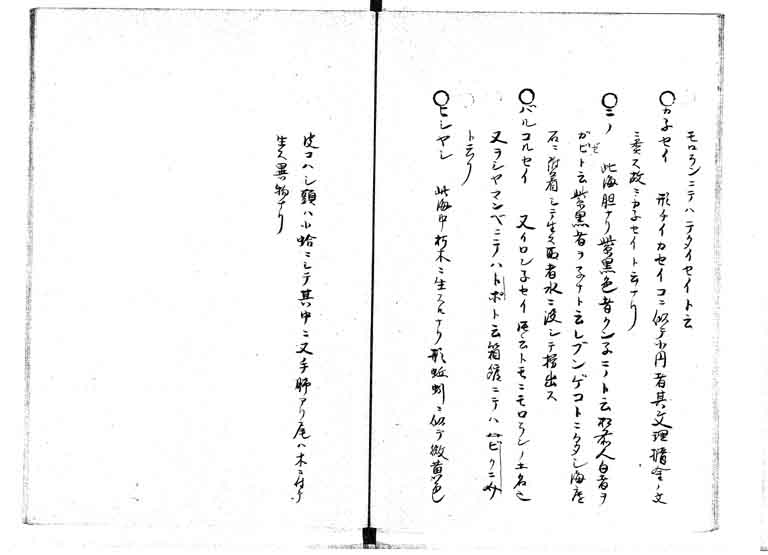 モロランニテハテタイセイト云
○カ子セイ 形チイカセイコニ似テ小円者其文理 ノ文
ニ类ス故ニカ子セイト云ナリ
○ニノ 此海胆ナリ紫黒色者クン子ニノト云 人白者ヲ
ガゼト云紫黒者ヲ ト云レブンゲコトニ タシ海底
石ニ附着シテ生ス 者水ニ没シテ 出ス
○バルコルセイ 又イロン子セイ トモニモロランノ土名也
又ヲシヤマンベニテハトポト云箱舘ニテハ
ト云リ
○ヒシヤシ 此海中朽木ニ生スル ナリ形蚯蚓ニ似テ微黄色
皮コハシ頭ハ小蛤ニシテ其中ニ又手 アリ尾ハ木ニ付ク
生ク異物ナリ